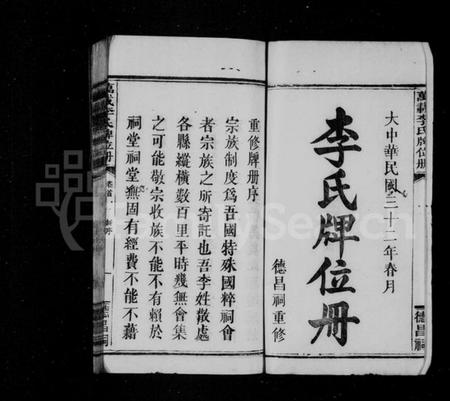 萬載李氏牌位册
德昌祠
大中華民國三十二年春月
李氏牌位册
德昌祠重修
重修牌册序
宗族制度爲吾國特殊國粹祠會
者宗族之所寄託也吾李姓散處
各縣縱横數百里平時幾無會集
之可能敬宗收族不能不有賴於
祠堂祠堂無固有經費不能不藉
萬載李氏牌位册
卷首
德昌祠
FamilySearch